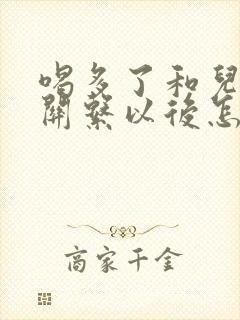 喝多了和兒
關繫以後怎
商家千金